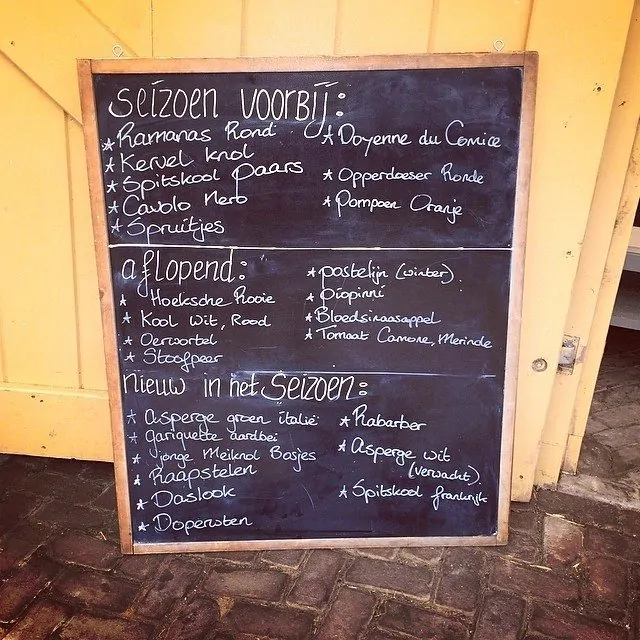 Seizoen voorbij:
* Ramanas Rond
* Kervel knol
* Spitskool paars
* Cavolo Nero
* Spruitjes
* Doyenne du Comice
* Opperdoeser Ronde
* Pompoen Oranje
aflopend:
* Hoeksche Rooie
* Kool wit, Rood
* Oerwortel
* Stoofpeer
* postelijn (winter)
* piopinni
* Bloedsinaasappel
* Tomaat Camone, Merinde
nieuw in het Seizoen:
* Asperge groen italie
* gariguette aardbei
* jonge Meiknol Bosjes
* Raapstelen
* Daslook
* Doperwten
* Rabarber
* Asperge wit
(verwacht)
* Spitskool frankrijk